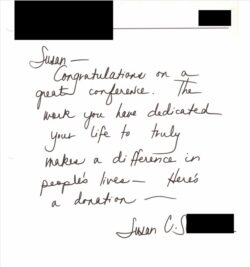 Susan —
Congratulations on a
great conference. The
work you have dedicated
your life to truly
makes a difference in
people's lives — Here's
a donation —
Susan C. S